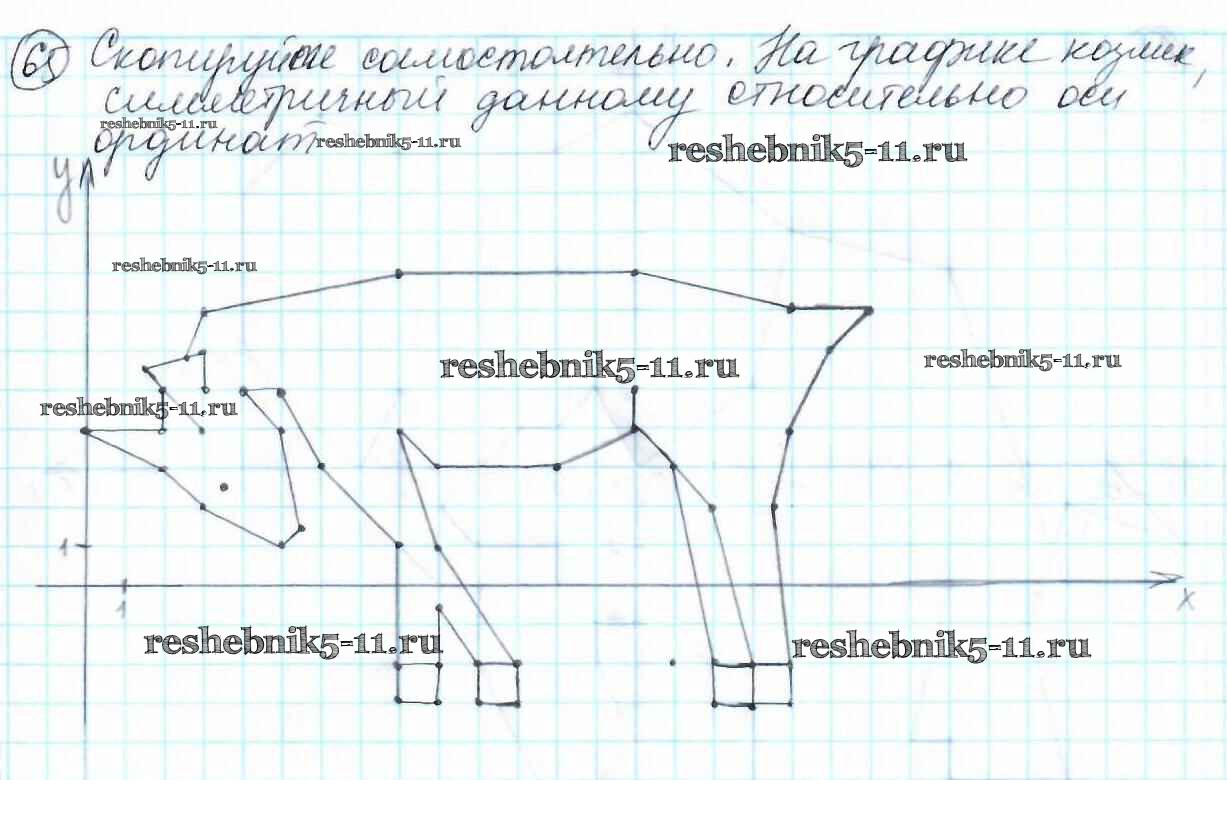 65 Скопируйте самостоятельно. На графике козлик,
симметричный данному относительно оси
reshebnik5-11.ru
ординат reshebnik5-11.ru reshebnik5-11.ru
y
reshebnik5-11.ru
reshebnik5-11.ru reshebnik5-11.ru
reshebnik5-11.ru
1
1 x
reshebnik5-11.ru reshebnik5-11.ru